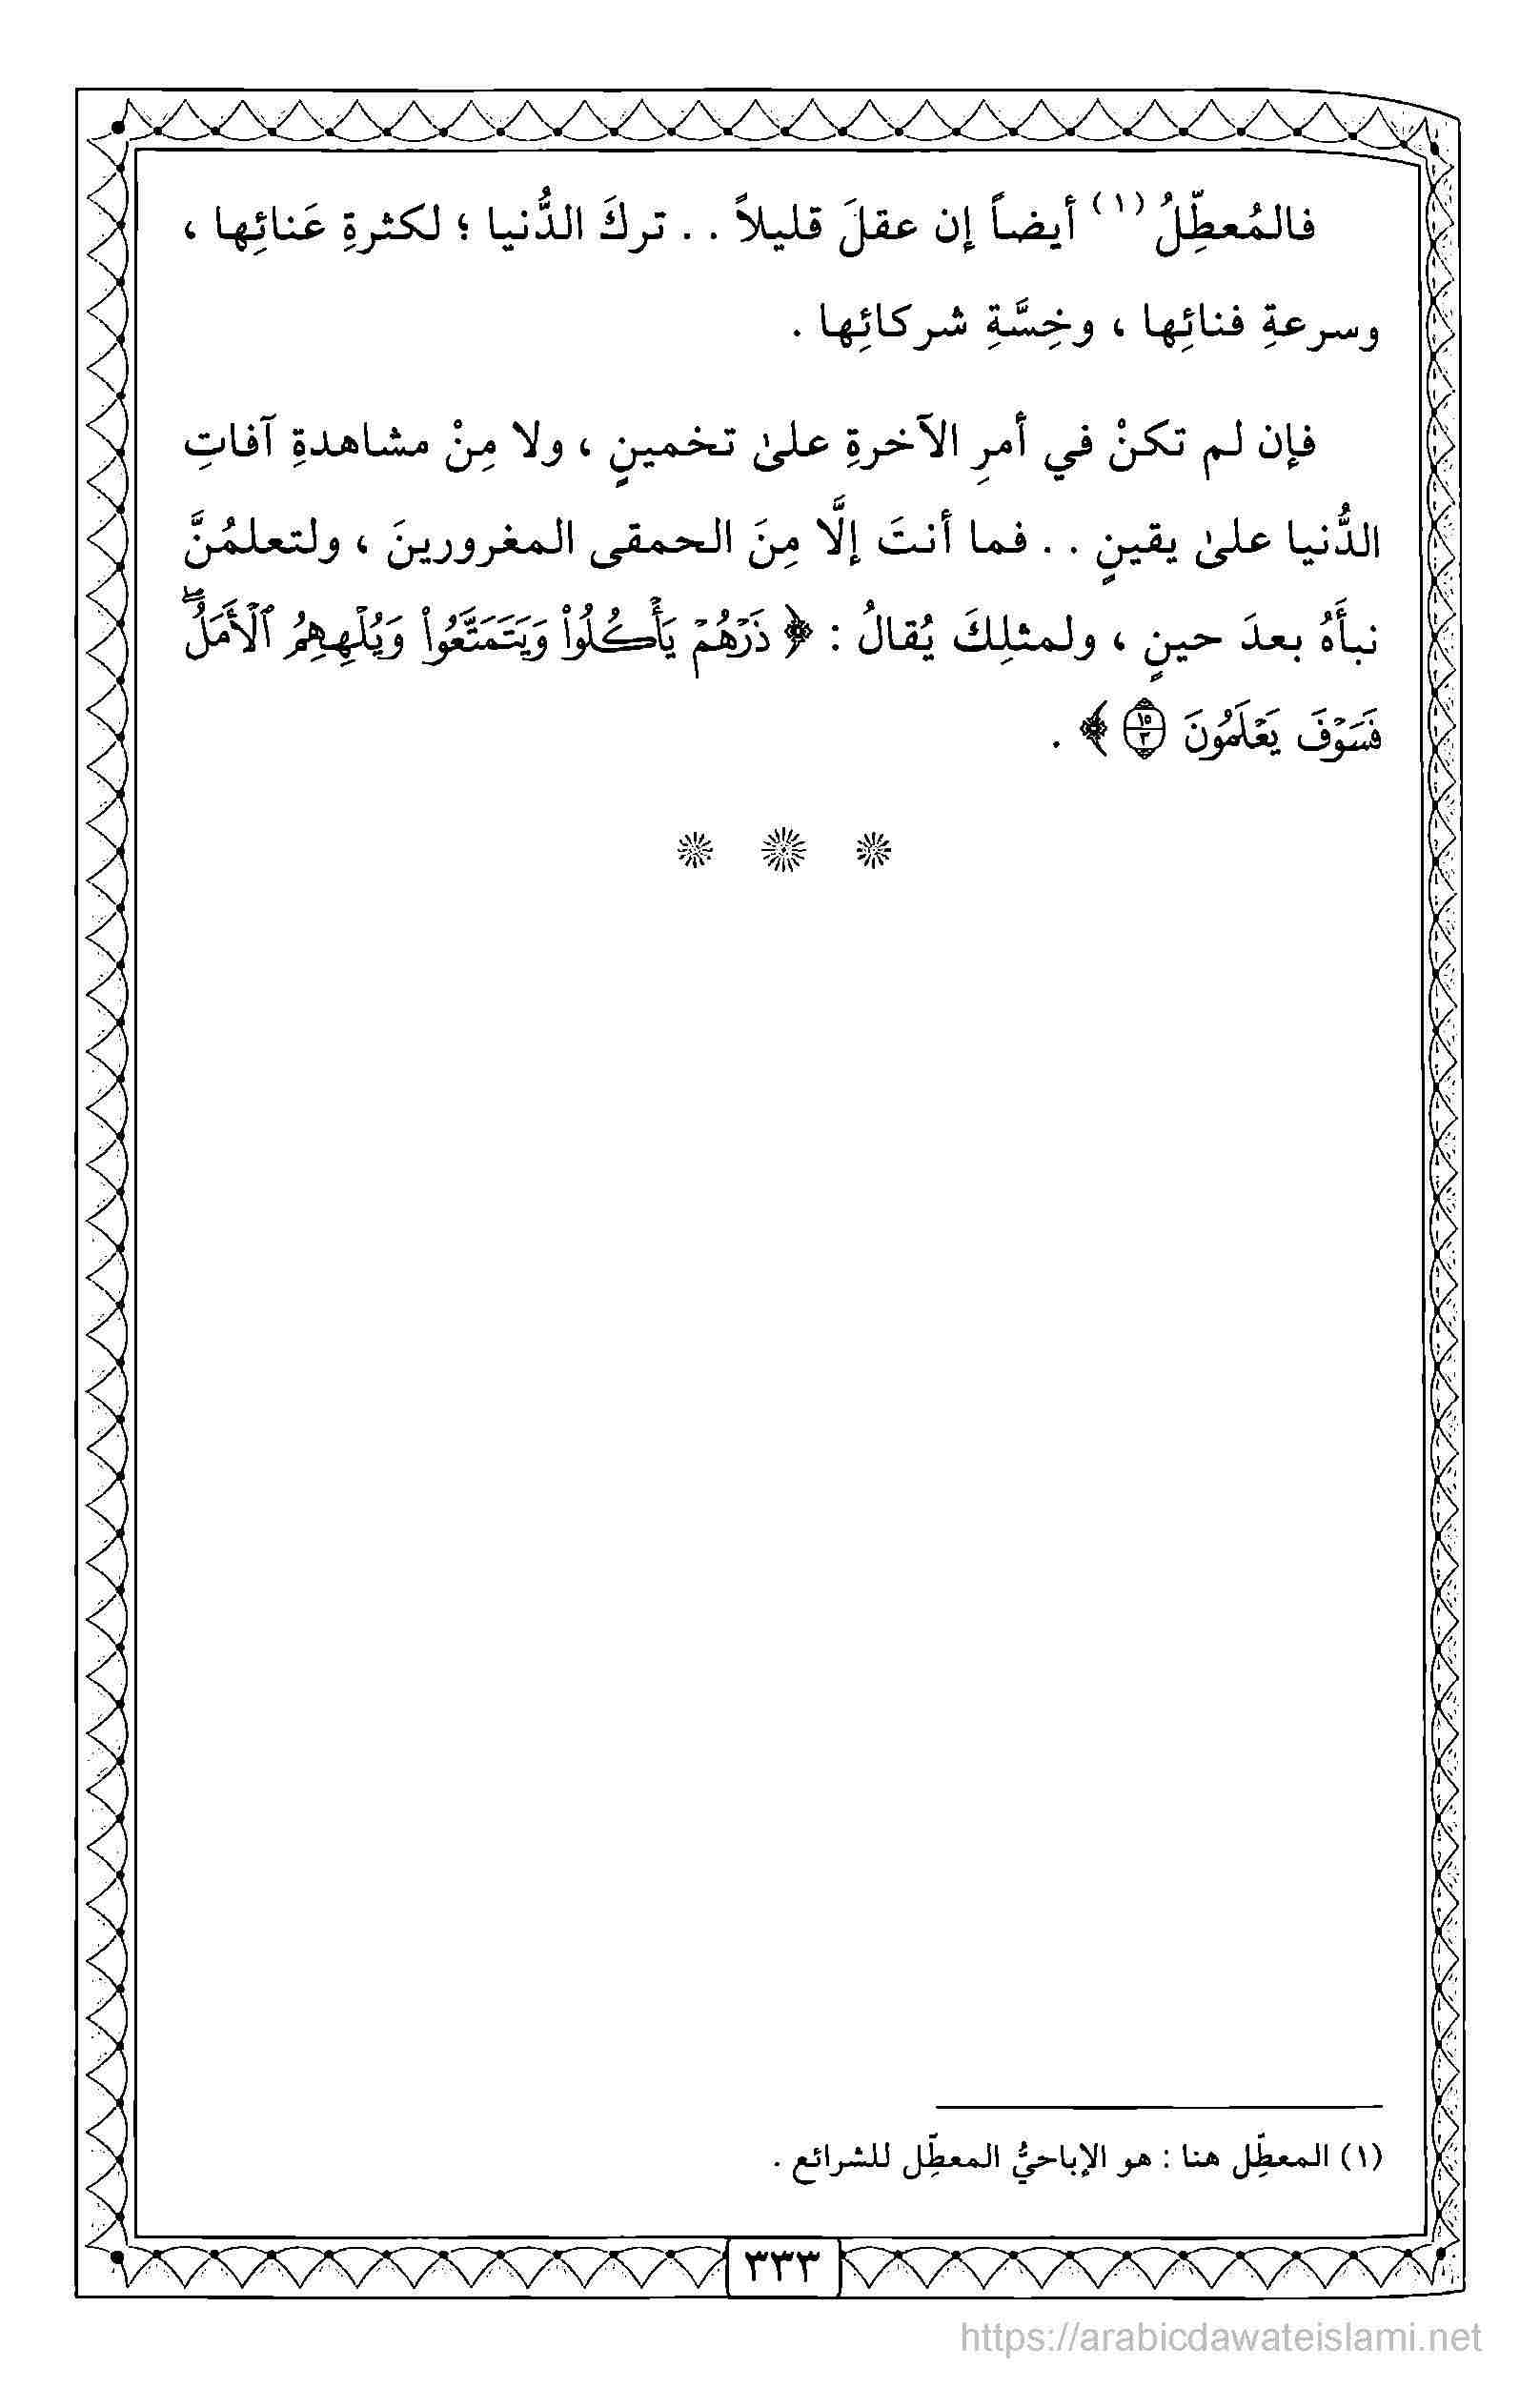 فالمُعطِّلُ (١) أيضاً إن عقلَ قليلاً . . تركَ الدُّنيا ؛ لكثرةِ عَنائِها ،
وسرعةِ فنائِها ، وخِسَّةِ شركائِها .
فإن لم تكنْ في أمرِ الآخرةِ علىٰ تخمينٍ ، ولا مِنْ مشاهدةِ آفاتِ
الدُّنيا علىٰ يقينٍ . . فما أنتَ إلَّا مِنَ الحمقى المغرورينَ ، ولتعلمُنَّ
نبأَهُ بعدَ حينٍ ، ولمثلِكَ يُقالُ : ﴿ ذَرْهُمْ يَأْكُلُوا۟ وَيَتَمَتَّعُوا۟ وَيُلْهِهِمُ ٱلْأَمَلُ ۖ
فَسَوْفَ يَعْلَمُونَ ١٥/٣ ﴾ .
(١) المعطِّل هنا : هو الإباحيُّ المعطِّل للشرائع .
٣٣٣
https://arabicdawateislami.net